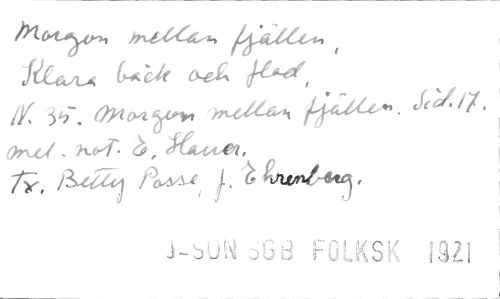 Morgon mellan fjällen,
Klara bäck och flod,
N. 35. Morgon mellan fjällen. Sid. 17.
mel. not. E. Hauer.
Tx. Betty Posse, f. Ehrenborg.
J-SON SGB FOLKSK 1921